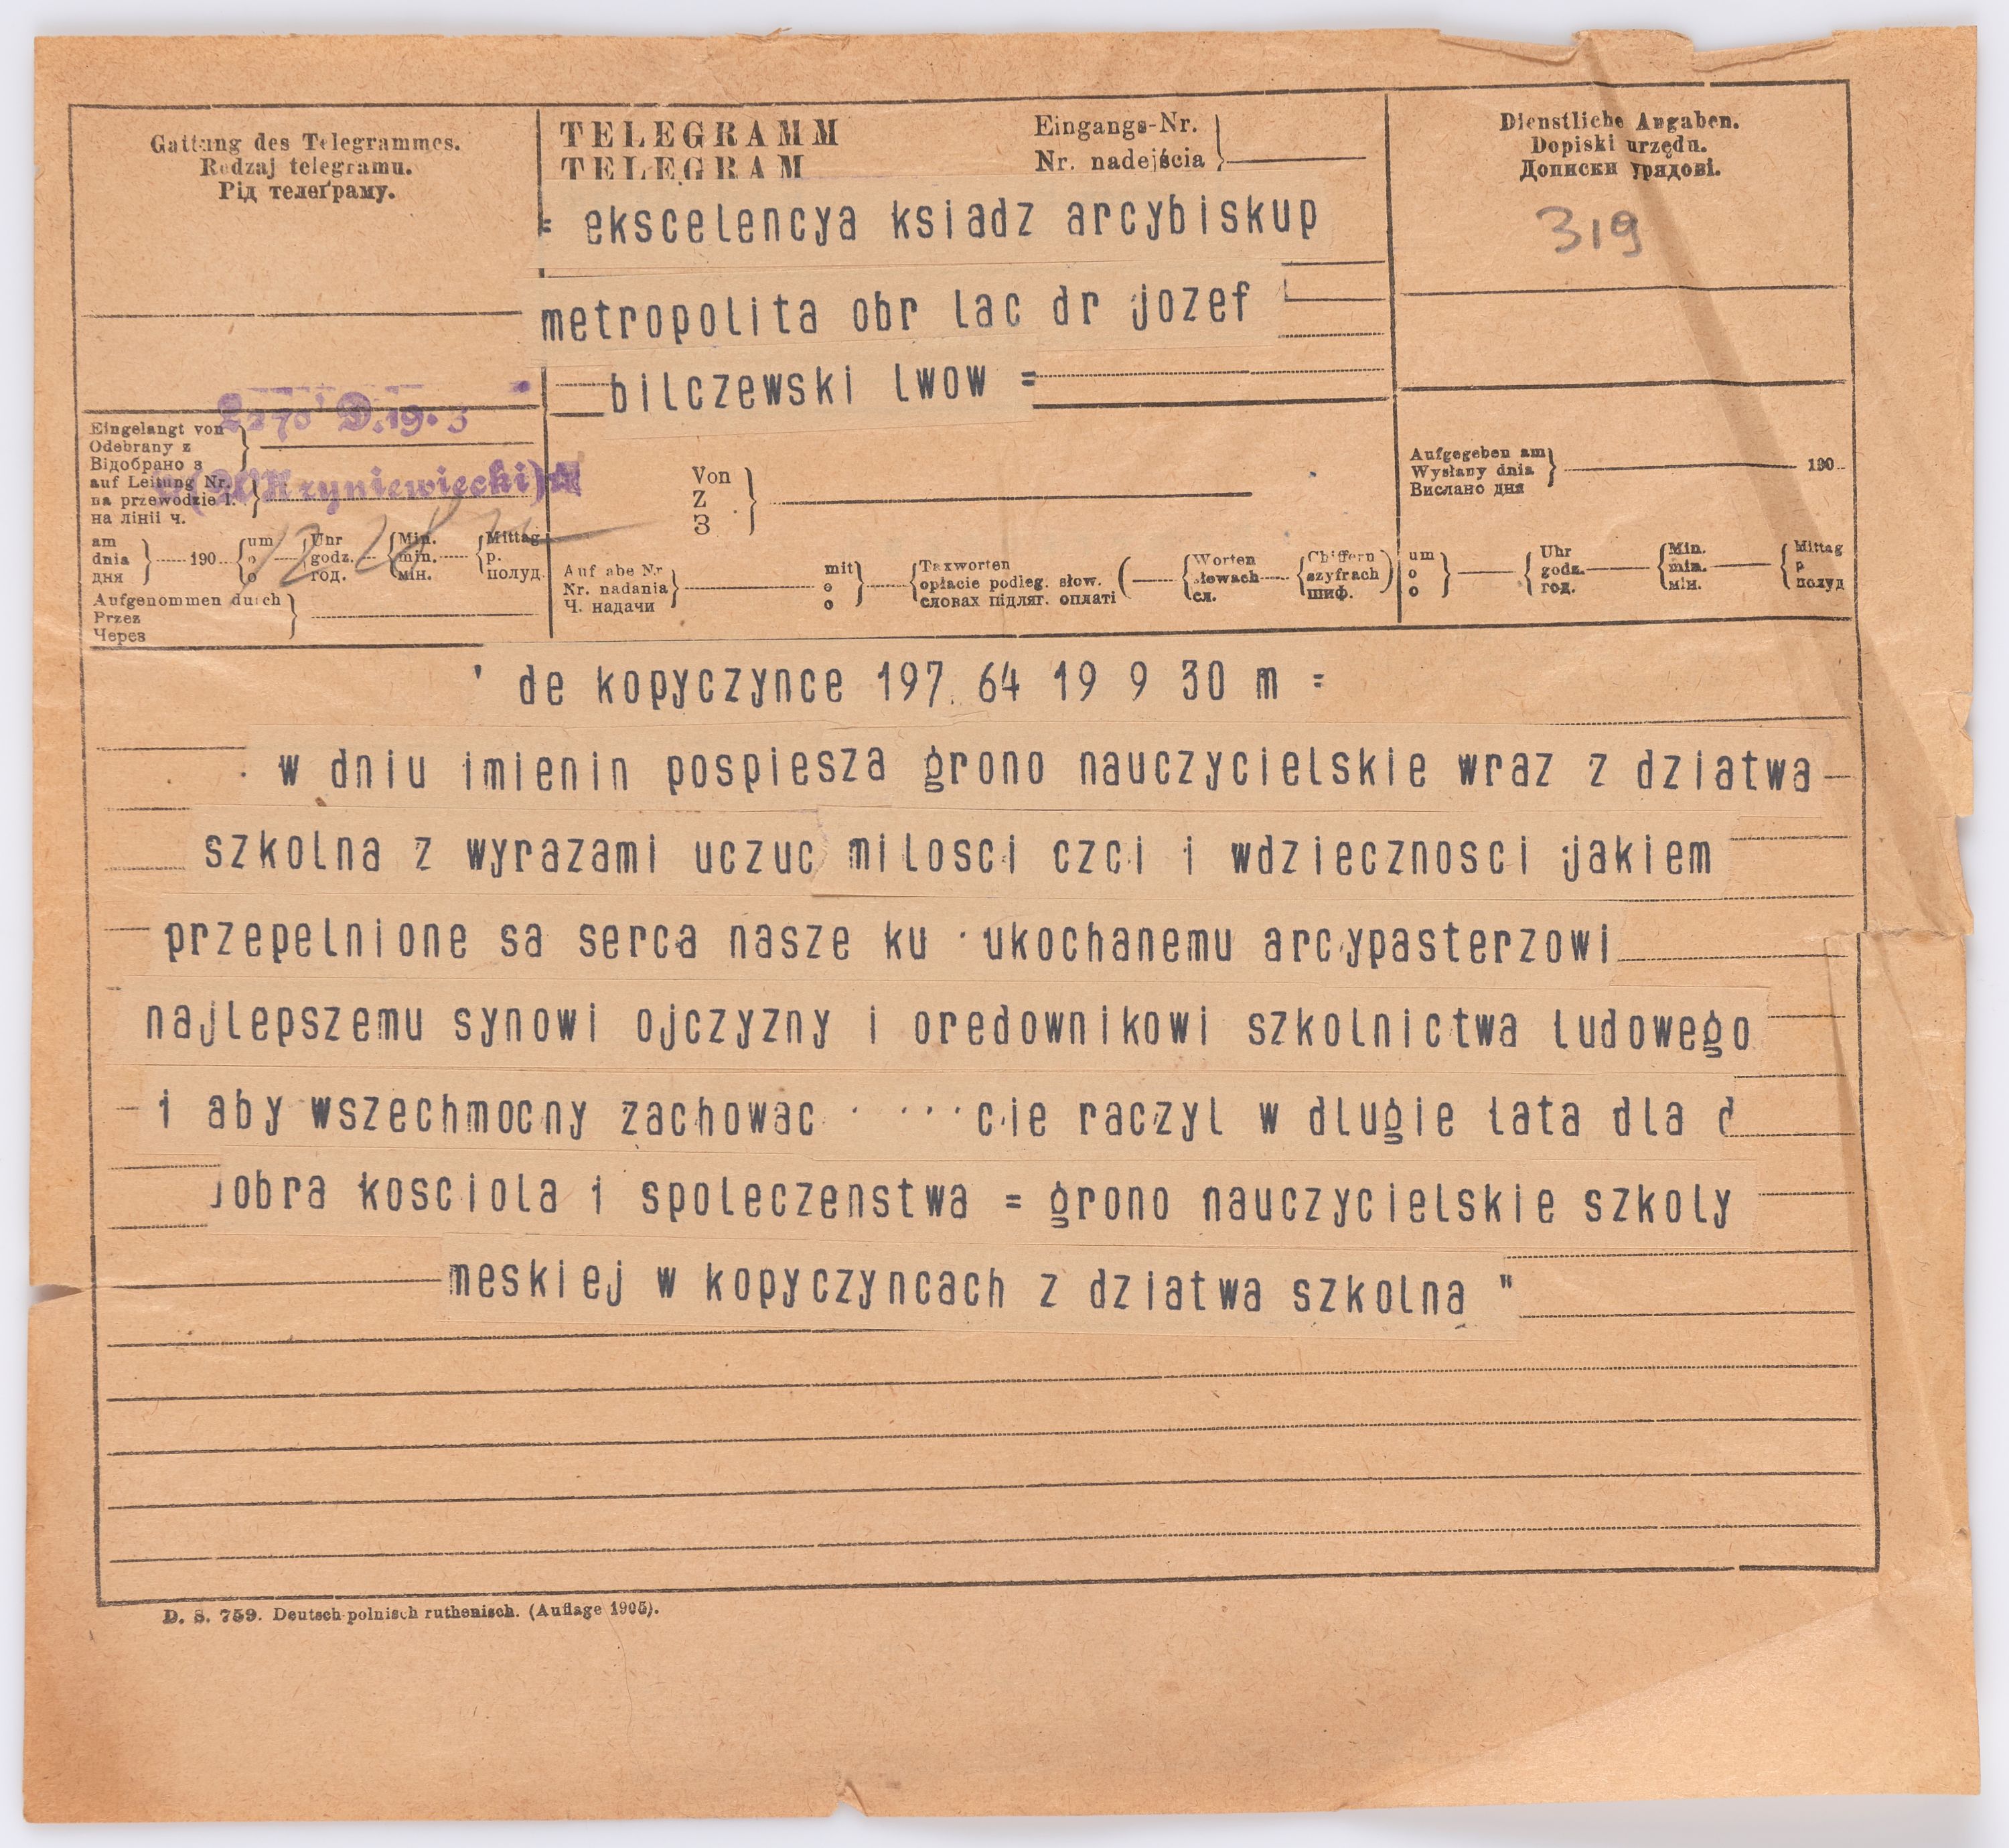 Gattung des Telegrammes.
Rodzaj telegramu.
Рід телеґраму.
TELEGRAMM
TELEGRAM
Eingangs-Nr.
Nr. nadejścia
Dienstliche Angaben.
Dopiski urzędu.
Дописки урядові.
319
= ekscelencya ksiadz arcybiskup
metropolita obr lac dr jozef
bilczewski lwow =
D.19.3
Eingelangt von
Odebrany z
Відобрано з
auf Leitung Nr.
na przewodzie l.
на лінії ч.
am
dnia
дня
190
um
o
о
Uhr
godz.
год.
Min.
min.
мін.
Mittag
p.
полуд.
Aufgenommen durch
Przez
Через
Von
Z
З
Aufgabe Nr
Nr. nadania
Ч. надачи
mit
o
о
Taxworten
opłacie podleg. słow.
словах підляг. оплаті
Worten
słowach
сл.
Chiffern
szyfrach
шиф.
Aufgegeben am
Wysłany dnia
Вислано дня
190
um
o
о
Uhr
godz.
год.
Min.
min.
мін.
Mittag
p
полуд
' de kopyczynce 197. 64 19 9 30 m =
w dniu imienin pospiesza grono nauczycielskie wraz z dziatwa
szkolna z wyrazami uczuc milosci czci i wdziecznosci jakiem
przepelnione sa serca nasze ku ukochanemu arcypasterzowi
najlepszemu synowi ojczyzny i oredownikowi szkolnictwa ludowego
i aby wszechmocny zachowac cie raczyl w dlugie lata dla d
dobra kosciola i spoleczenstwa = grono nauczycielskie szkoly
meskiej w kopyczyncach z dziatwa szkolna "
D. S. 759. Deutsch-polnisch ruthenisch. (Auflage 1905).